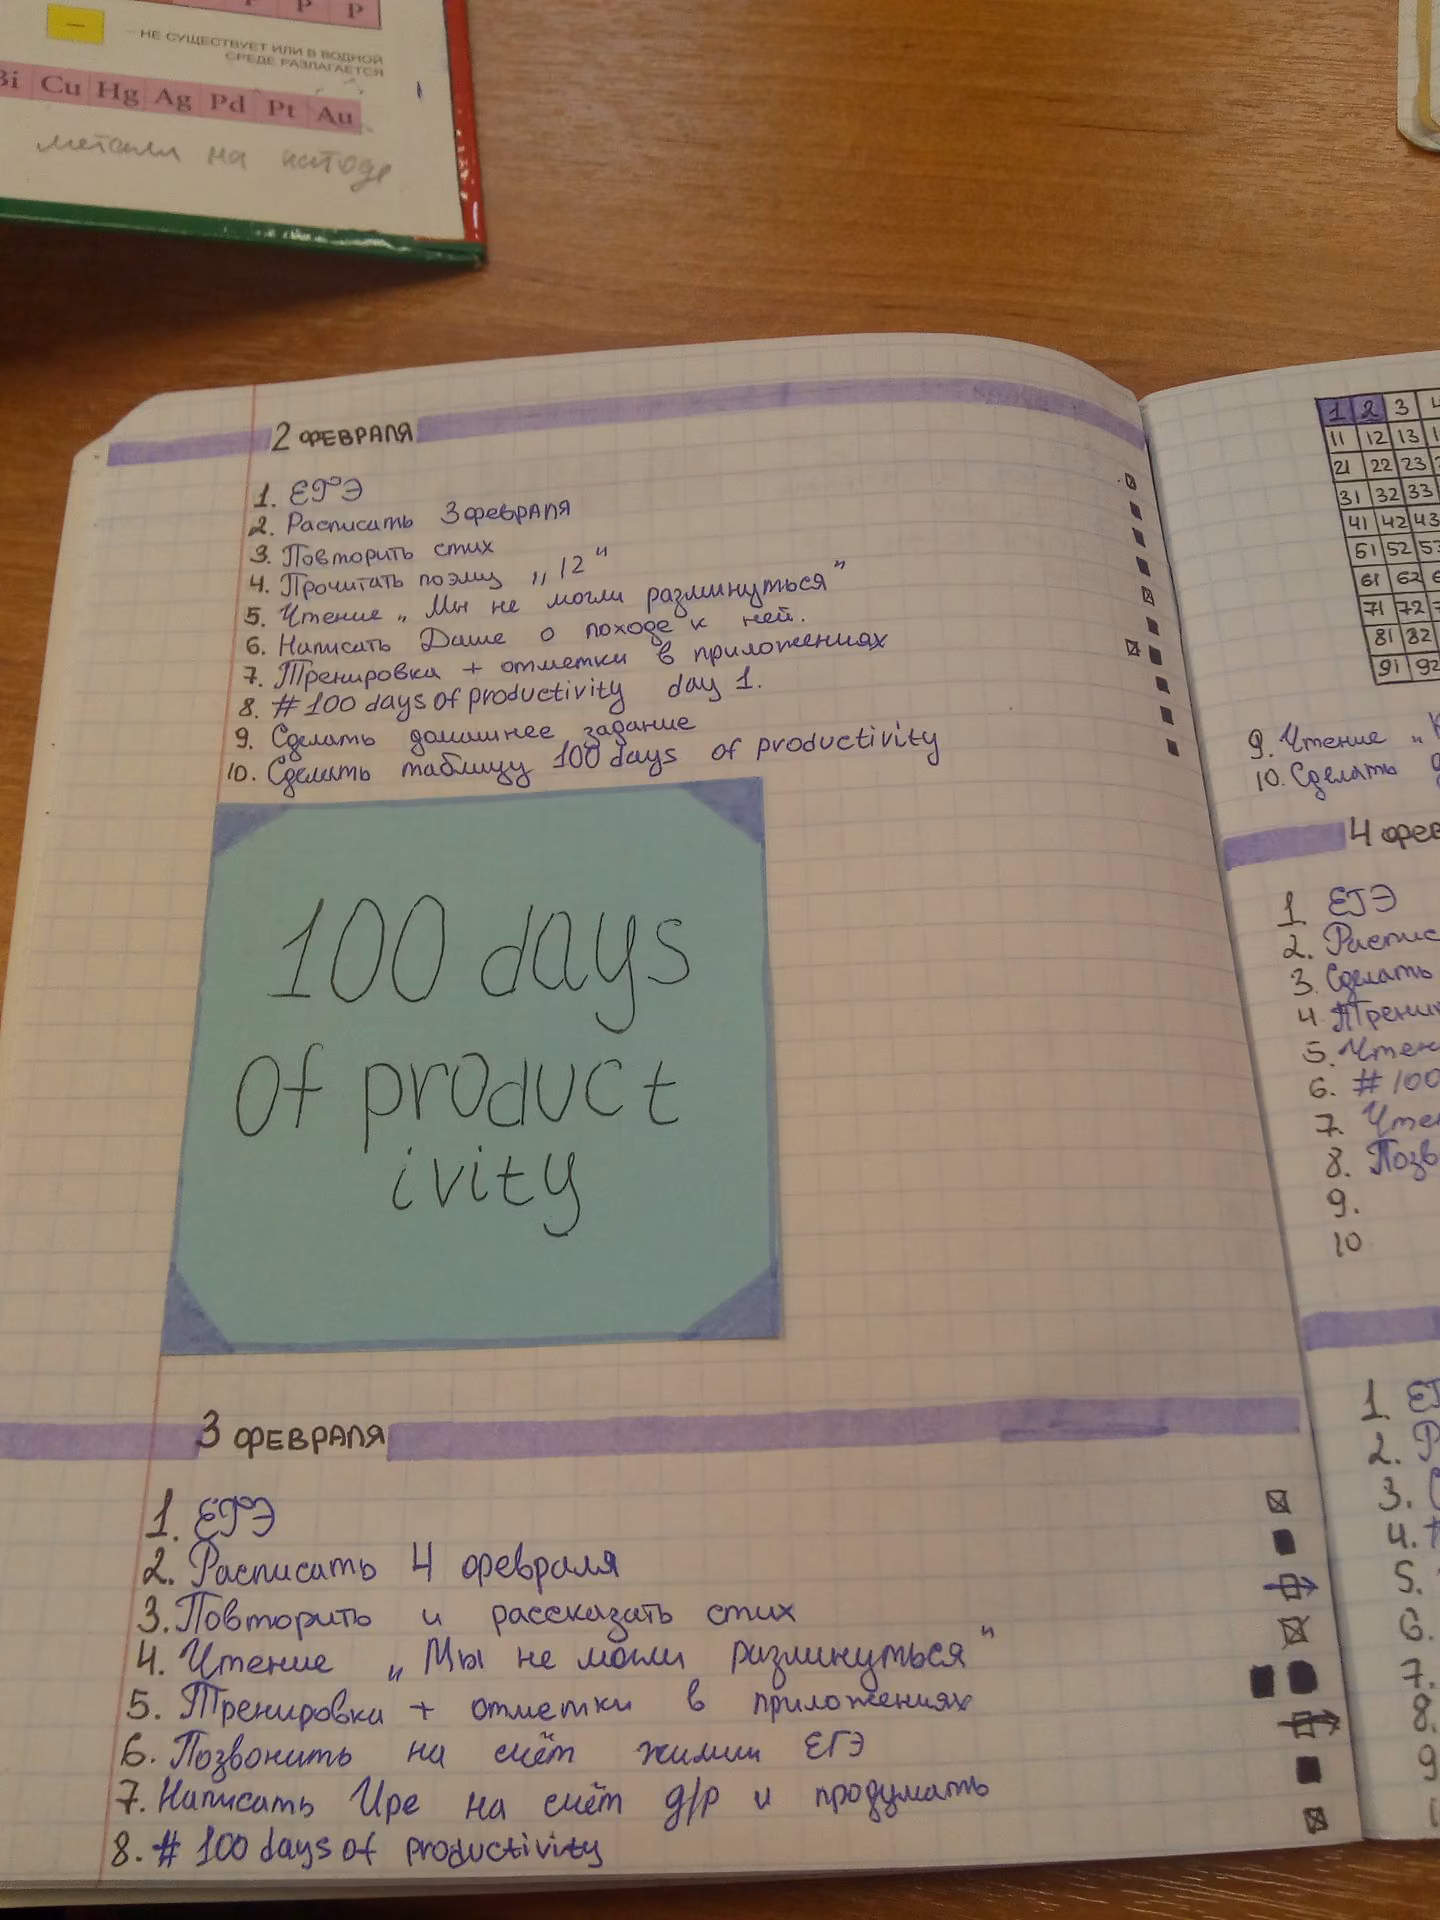 Р Р
–
– НЕ СУЩЕСТВУЕТ ИЛИ В ВОДНОЙ
СРЕДЕ РАЗЛАГАЕТСЯ
Bi Cu Hg Ag Pd Pt Au
металл на катоде
2 ФЕВРАЛЯ
1. ЕГЭ
2. Расписать 3 февраля
3. Повторить стих
4. Прочитать поэму „12"
5. Чтение „Мы не могли разминуться"
6. Написать Даше о походе к ней.
7. Тренировка + отметки в приложениях
8. # 100 days of productivity day 1.
9. Сделать домашнее задание
10. Сделать таблицу 100 days of productivity
100 days
of product
ivity
3 ФЕВРАЛЯ
1. ЕГЭ
2. Расписать 4 февраля
3. Повторить и рассказать стих
4. Чтение „Мы не могли разминуться"
5. Тренировка + отметки в приложениях
6. Позвонить на счёт химии ЕГЭ
7. Написать Ире на счёт д/р и продумать
8. # 100 days of productivity
1 2 3 4
11 12 13
21 22 23
31 32 33
41 42 43
51 52 53
61 62
71 72
81 82
91 92
9. Чтение „
10. Сделать
4 ФЕВ
1 ЕГЭ
2. Распис
3. Сделать
4. Трени
5. Чтен
6. # 100
7. Чте
8. Позв
9.
10
1
2.
3.
4.
5.
6.
7.
8.
9